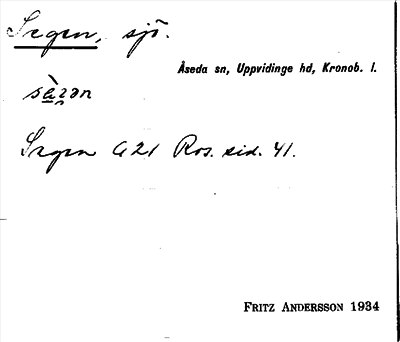 Segen, sjö.
Åseda sn, Uppvidinge hd, Kronob. l.
Segen G 21 Ros. sid. 41.
FRITZ ANDERSSON 1934